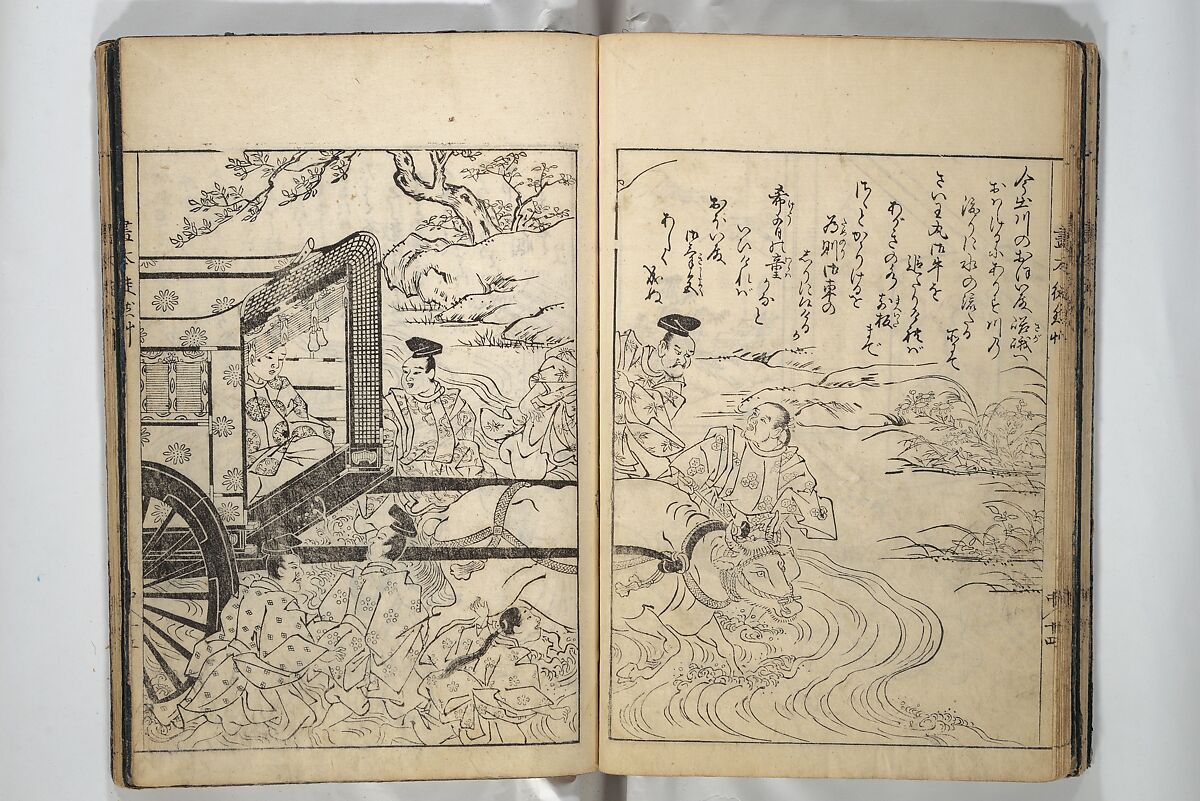 畫本徒然艸
中 十四
今出川のおほい殿嵯峨へ
おはしけるにありす川の
渡りに水の流たる所にて
さい王丸御牛を
追たりければ
あがきの水前板まで
さゝとかゝりけるを
為則御車の
しりに候けるが
希有の童かなと
いひければ
おほい殿
御気色
あしく成ぬ
畫本徒然艸